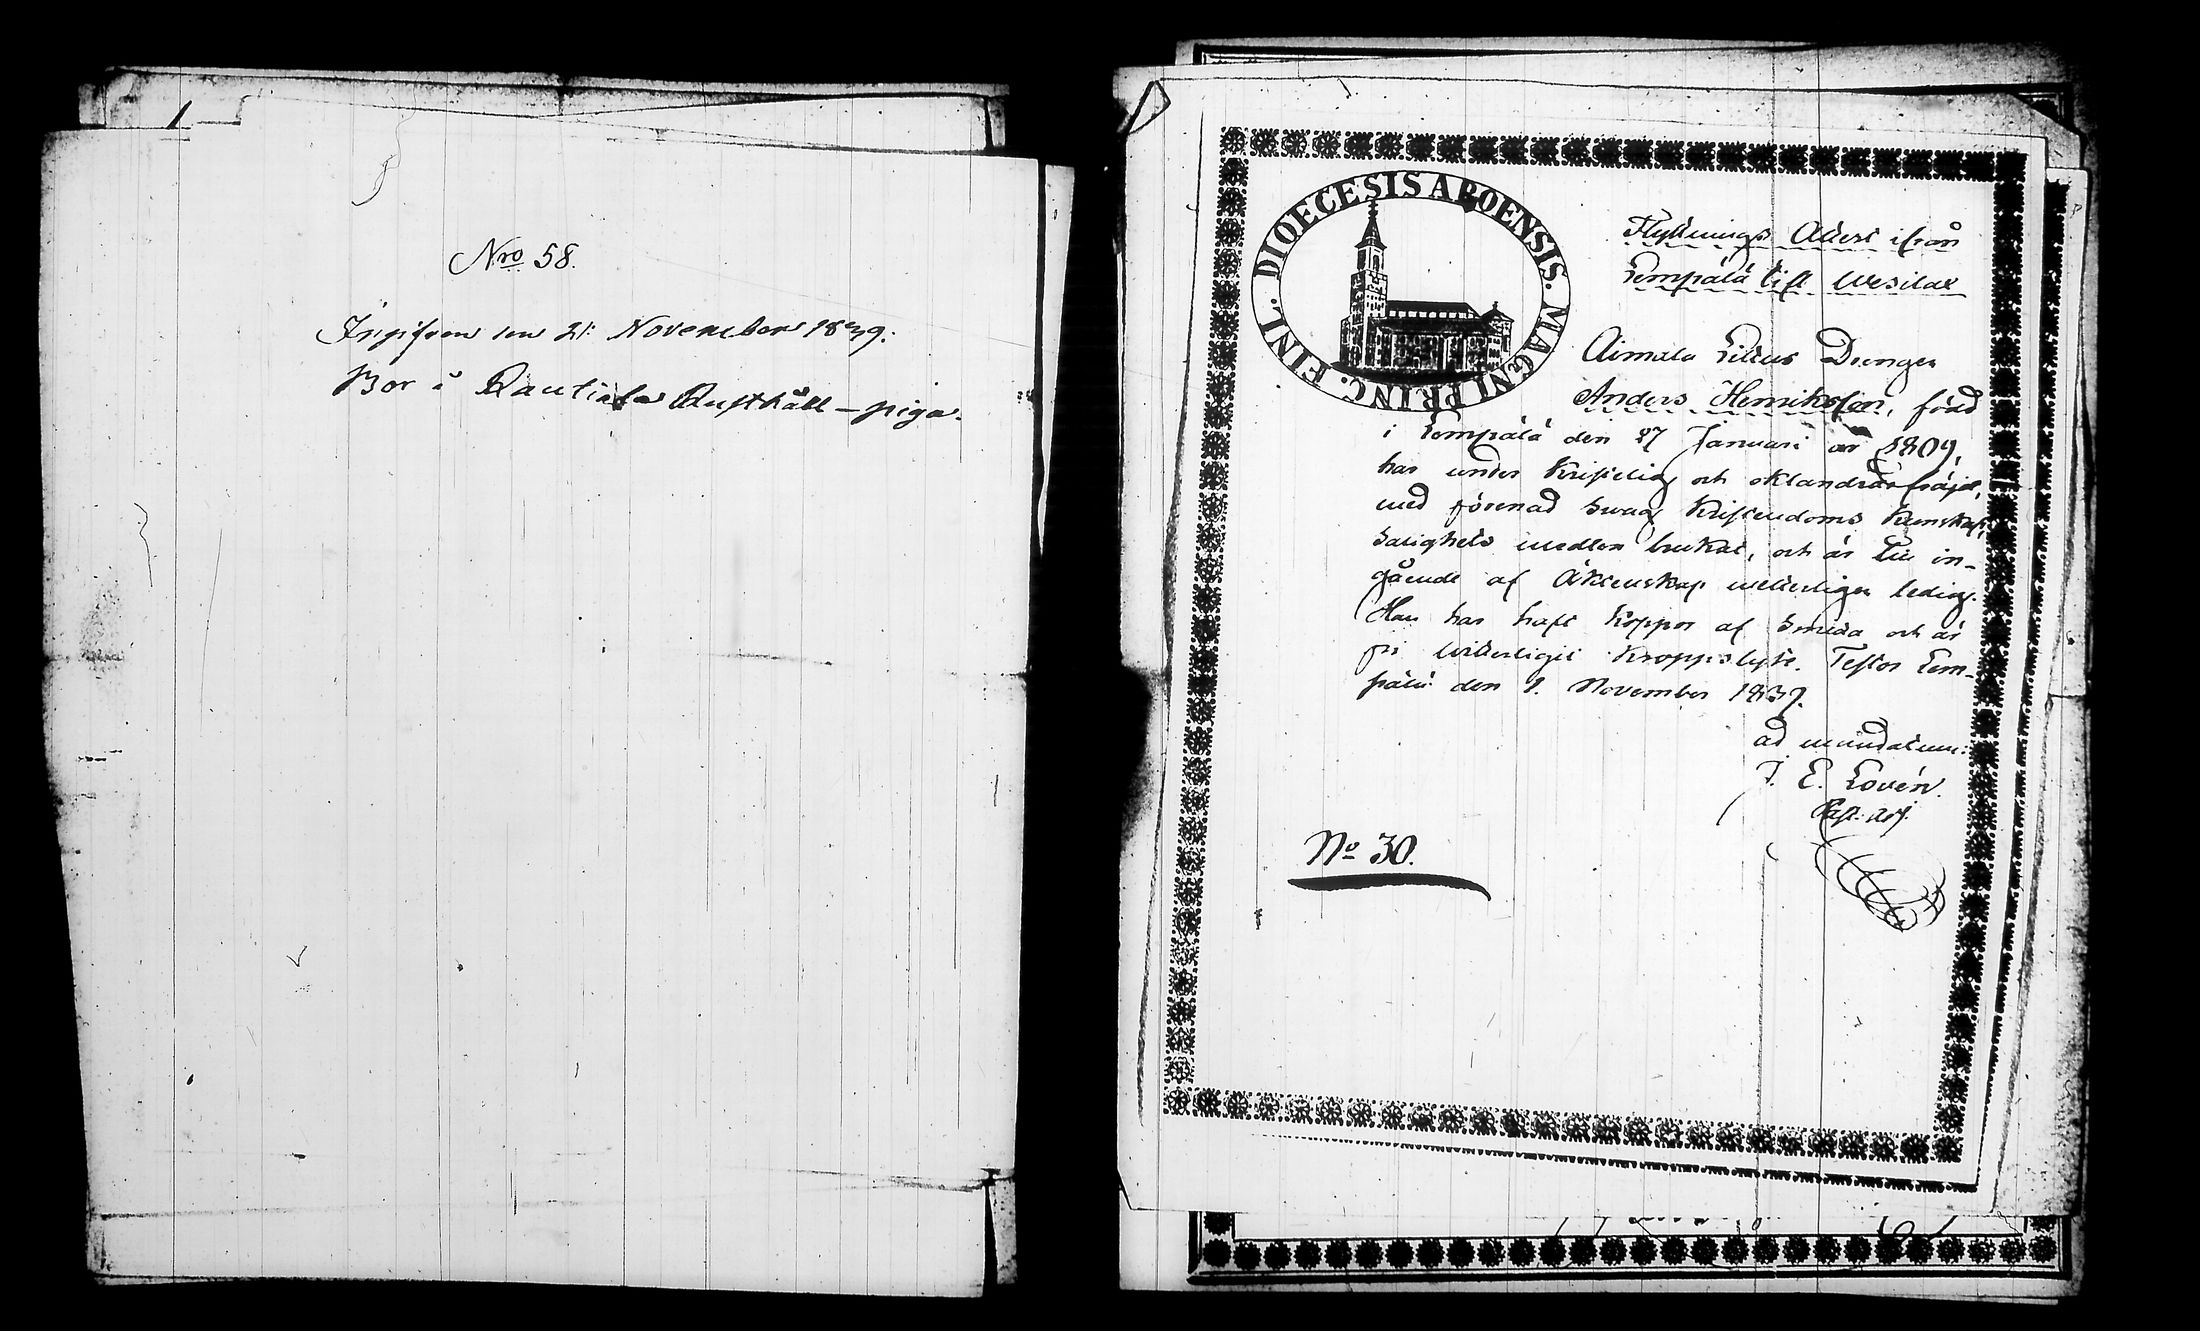 Nro 58.
Ingifven den 21: November 1839.
Bor i Rautiala Rusthåll – piga.
DIOECESIS ABOENSIS. MAGNI PRINC. FINL.
Flyttnings Attest ifrån
Lempälä till Wesilax
Aimala Drengen
Anders Henriksson, född
i Lempälä den 27 Januari år 1809,
har under Kristelig och oklandrad fräjd,
med förenad swag Kristendoms Kunskap,
Salighets medlen brukat, och är till in-
gående af Äktenskap wetterligen ledig.
Han har haft Koppor af Smitta och är
fri witterligit Kroppslyte. Testor Lem-
pälä den 1. November 1839.
ad mandatum:
J. E. Lovén.
Past. adj.
No 30.